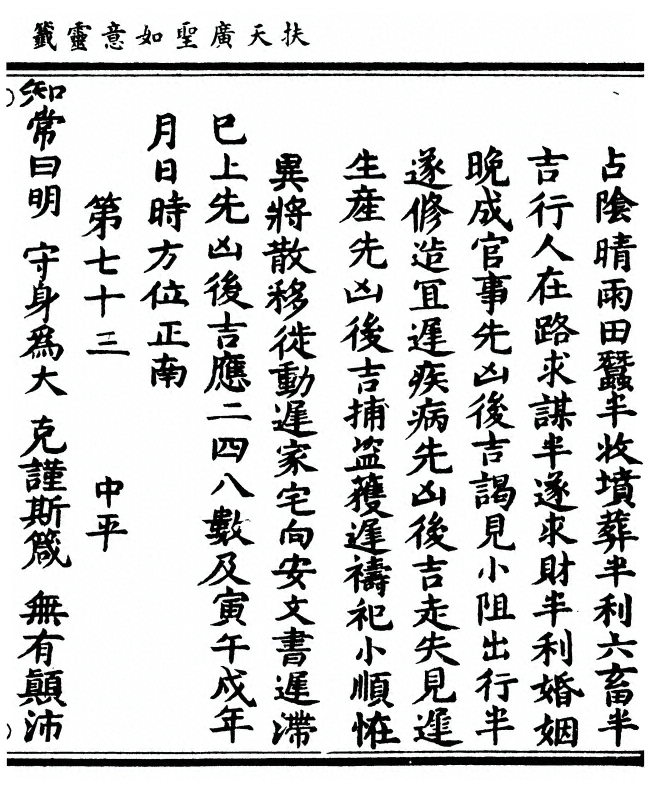 扶天廣聖如意靈籤
占陰晴雨田蠶半收墳葬半利六畜半
吉行人在路求謀半遂求財半利婚姻
晚成官事先凶後吉謁見小阻出行半
遂修造宜遲疾病先凶後吉走失見遲
生產先凶後吉捕盜獲遲禱祀小順恠
異將散移徙動遲家宅向安文書遲滯
巳上先凶後吉應二四八數及寅午戌年
月日時方位正南
第七十三 中平
知常曰明 守身為大 克謹斯箴 無有顛沛